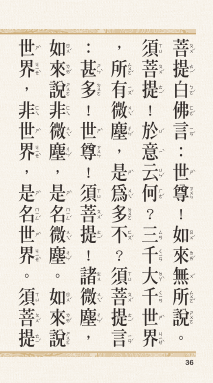 菩提白佛言：世尊！如來無所說。
須菩提！於意云何？三千大千世界
，所有微塵，是為多不？須菩提言
：甚多！世尊！須菩提！諸微塵，
如來說非微塵，是名微塵。如來說
世界，非世界，是名世界。須菩提
36